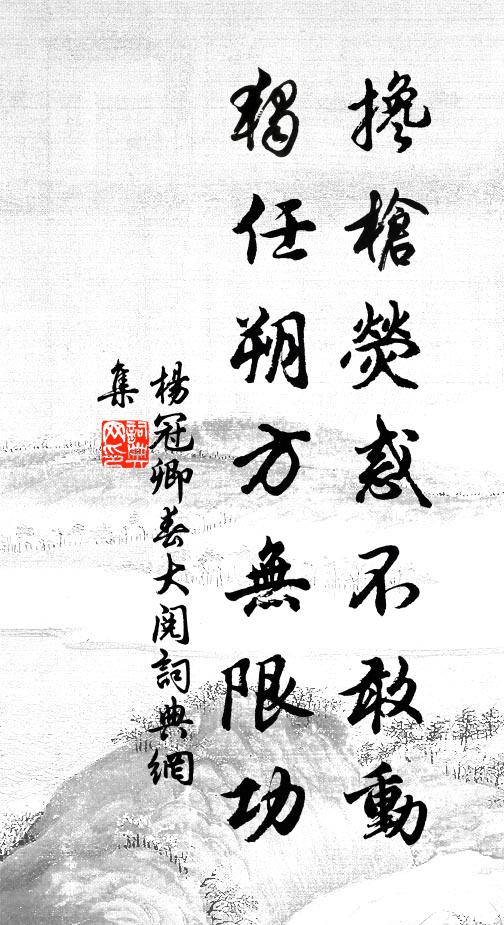 攙槍熒惑不敢動
獨任朔方無限功
楊冠卿春大閱詞典網
集